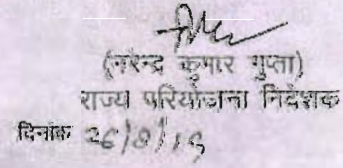 (नरेन्द्र कुमार गुप्ता)
राज्य परियोजना निदेशक
दिनांक 26/8/19